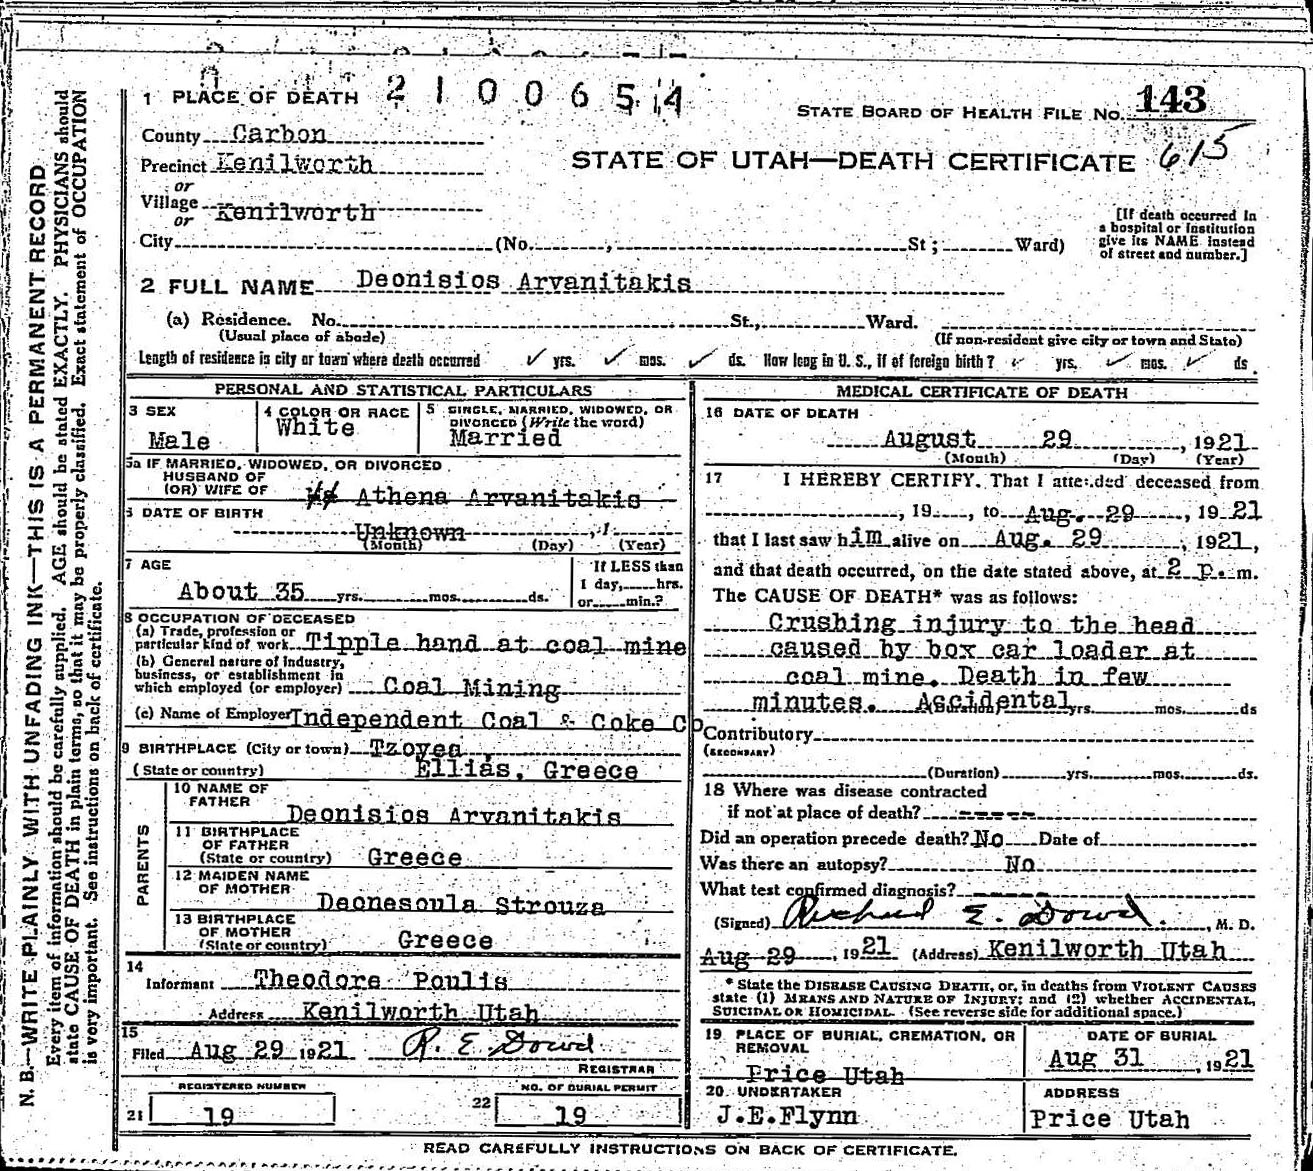 2100654
1 PLACE OF DEATH
STATE BOARD OF HEALTH FILE NO. 143
County Carbon
615
Precinct Kenilworth
STATE OF UTAH—DEATH CERTIFICATE
or
Village Kenilworth
or
City (No. , St; Ward)
[If death occurred in
a hospital or institution
give its NAME instead
of street and number.]
2 FULL NAME Deonisios Arvanitakis
(a) Residence. No. St., Ward.
(Usual place of abode) (If non-resident give city or town and State)
Length of residence in city or town where death occurred ✓ yrs. ✓ mos. ✓ ds. How long in U. S., if of foreign birth? ✓ yrs. ✓ mos. ✓ ds.
PERSONAL AND STATISTICAL PARTICULARS
3 SEX
Male
4 COLOR OR RACE
White
5 SINGLE, MARRIED, WIDOWED, OR
DIVORCED (Write the word)
Married
5a IF MARRIED, WIDOWED, OR DIVORCED
HUSBAND OF
(OR) WIFE OF Athena Arvanitakis
6 DATE OF BIRTH
Unknown , 1
(Month) (Day) (Year)
7 AGE
About 35 yrs. mos. ds.
If LESS than
1 day, hrs.
or min.?
8 OCCUPATION OF DECEASED
(a) Trade, profession or
particular kind of work Tipple hand at coal mine
(b) General nature of industry,
business, or establishment in
which employed (or employer) Coal Mining
(c) Name of Employer Independent Coal & Coke Co
9 BIRTHPLACE (City or town) Tzoyea
(State or country) Ellias, Greece
PARENTS
10 NAME OF
FATHER
Deonisios Arvanitakis
11 BIRTHPLACE
OF FATHER
(State or country) Greece
12 MAIDEN NAME
OF MOTHER
Deonesoula Strouza
13 BIRTHPLACE
OF MOTHER
(State or country) Greece
14
Informant Theodore Poulis
Address Kenilworth Utah
15
Filed Aug 29 1921 R. E. Dowd
REGISTRAR
REGISTERED NUMBER
21 19
NO. OF BURIAL PERMIT
22 19
MEDICAL CERTIFICATE OF DEATH
16 DATE OF DEATH
August 29 , 1921
(Month) (Day) (Year)
17 I HEREBY CERTIFY, That I attended deceased from
, 19 , to Aug. 29 , 1921
that I last saw him alive on Aug. 29 , 1921,
and that death occurred, on the date stated above, at 2 p. m.
The CAUSE OF DEATH* was as follows:
Crushing injury to the head
caused by box car loader at
coal mine. Death in few
minutes. Accidental
(Duration) yrs. mos. ds
Contributory
(SECONDARY)
(Duration) yrs. mos. ds.
18 Where was disease contracted
if not at place of death? -----
Did an operation precede death? No Date of
Was there an autopsy? No
What test confirmed diagnosis? -----
(Signed) Richard E. Dowd. , M. D.
Aug 29 , 1921 (Address) Kenilworth Utah
* State the DISEASE CAUSING DEATH, or, in deaths from VIOLENT CAUSES
state (1) MEANS AND NATURE OF INJURY; and (2) whether ACCIDENTAL,
SUICIDAL OR HOMICIDAL. (See reverse side for additional space.)
19 PLACE OF BURIAL, CREMATION, OR
REMOVAL
Price Utah
DATE OF BURIAL
Aug 31 , 1921
20 UNDERTAKER
J.E.Flynn
ADDRESS
Price Utah
READ CAREFULLY INSTRUCTIONS ON BACK OF CERTIFICATE.
N. B.—WRITE PLAINLY WITH UNFADING INK—THIS IS A PERMANENT RECORD
Every item of information should be carefully supplied. AGE should be stated EXACTLY. PHYSICIANS should
state CAUSE OF DEATH in plain terms, so that it may be properly classified. Exact statement of OCCUPATION
is very important. See instructions on back of certificate.